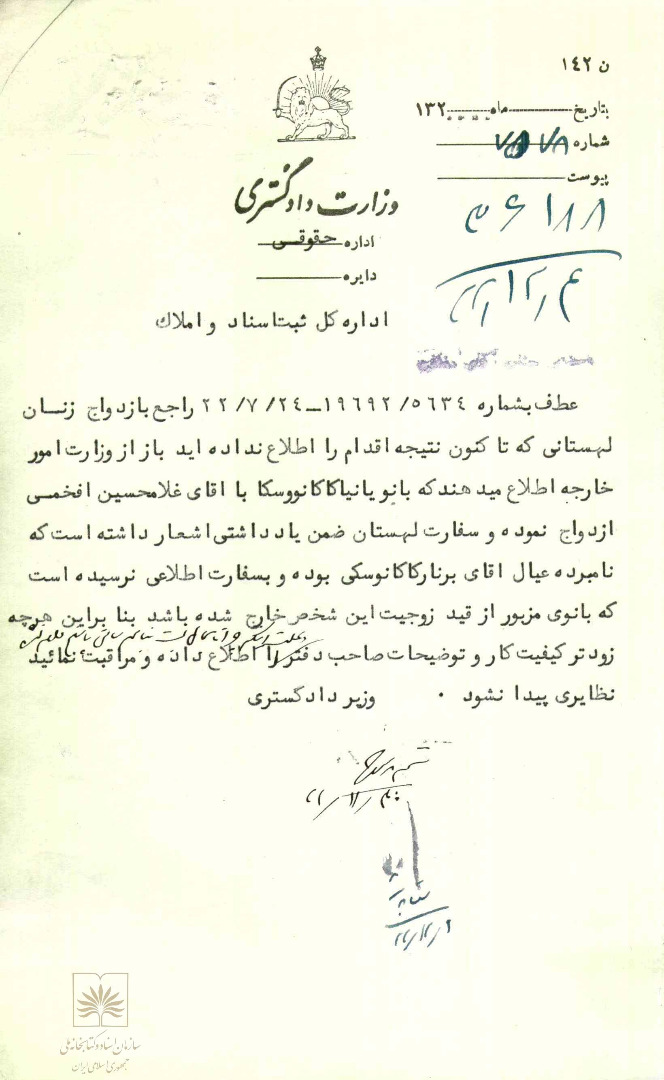 ن ١٤٢
بتاریخ ماه ١٣٢
شماره
پیوست
٣٦١٨٨
وزارت دادگستری
اداره حقوقی
دایره
اداره کل ثبت اسناد و املاک
عطف بشماره ١٩٦٩٢/٥٦٣٤ــ٢٢/٧/٢٤ راجع بازدواج زنـان
لهستانی که تا کنون نتیجه اقدام را اطلاع نداده اید باز از وزارت امور
خارجه اطلاع میدهند که بانو یانیاکاکانووسکا با اقای غلامحسین افخمـی
ازدواج نموده و سفارت لهستان ضمن یادداشتی اشعار داشته است که
نامبرده عیال اقای برنارکاکانوسکی بوده و بسفارت اطلاعی نرسیده است
که بانوی مزبور از قید زوجیت این شخص خارج شده باشد بنا براین هرچه
زودتر کیفیت کار و توضیحات صاحب دفتر را اطلاع داده و مراقبت نمائید
نظایری پیدا نشود ٠ وزیر دادگستری
سازمان اسناد و کتابخانه ملی
جمهوری اسلامی ایران